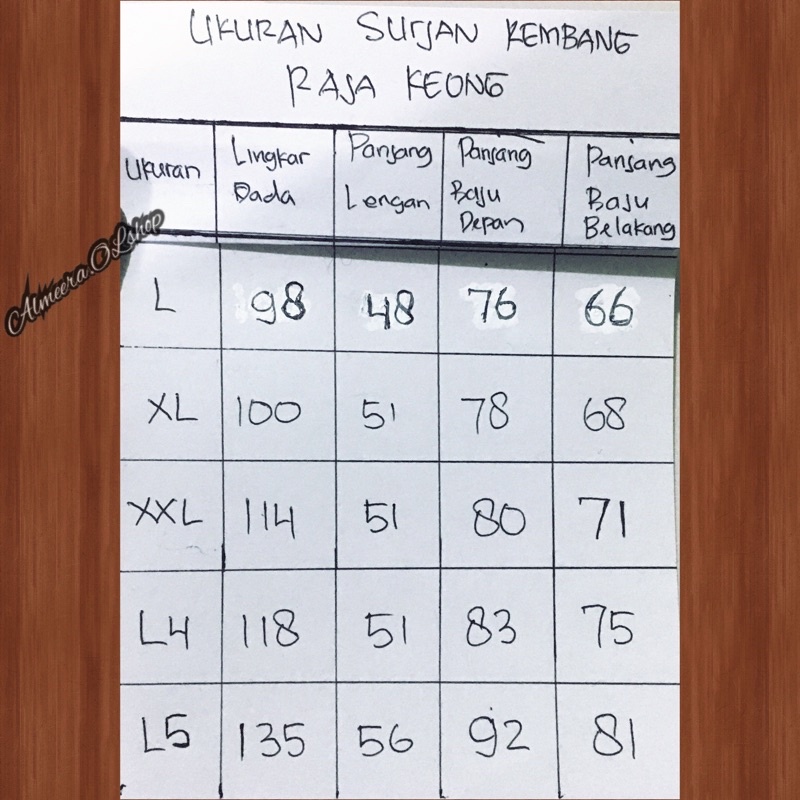 UKURAN SURJAN KEMBANG
RAJA KEONG
Ukuran Lingkar Dada Panjang Lengan Panjang Baju Depan Panjang Baju Belakang
Almeera.OLshop
L 98 48 76 66
XL 100 51 78 68
XXL 114 51 80 71
L4 118 51 83 75
L5 135 56 92 81